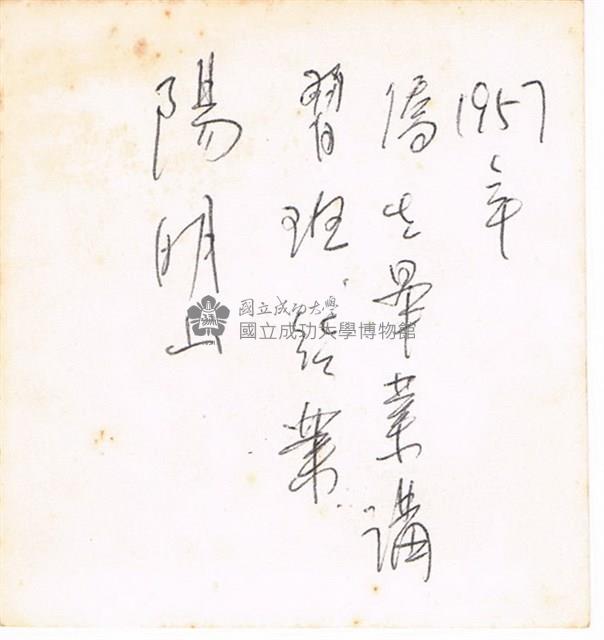 1957年
僑生畢業講
習班結業
陽明山
國立成功大學
國立成功大學博物館